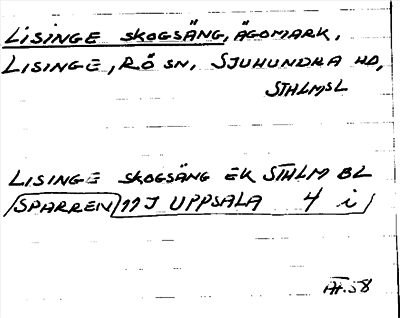 LISINGE SKOGSÄNG, ÄGOMARK,
LISINGE, RÖ SN, SJUHUNDRA HD,
STHLMSL
LISINGE SKOGSÄNG EK STHLM BL
SPARREN 11J UPPSALA 4 i
58